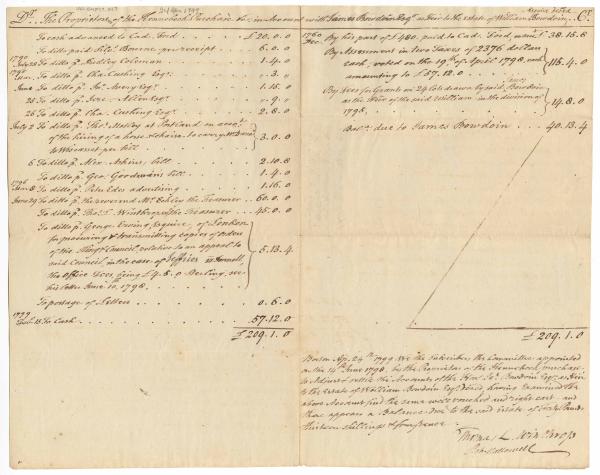 Dr. The Proprietors of the Kennebeck Purchase &c. in Account with James Bowdoin Esqr. as Heir to the estate of William Bowdoin Cr.
To cash advanced to Cad. Ford, £20.0.0
To ditto paid Bourne pr. receipt 6.0.0
1790
To ditto p. Dudley Coleman 1.4.0
To ditto p. Tha. Cushing Esqr. 3.
June To ditto p. Jno. Avery Esqr. 1.15.0
25 To ditto p. Jere. Allen Esqr. 9.
26 To ditto p. Tha. Cushing Esqr. 2.8.0
July 2 To ditto p. at Portland on accot.
of the hiring of a horse & chaise, to carry
to Wiscasset per bill 3.0.0
6 To ditto p. Alex. bill 2.10.8
To ditto p. Geo. Goodwin's bill 1.4.0
To ditto p. Peter Edes advertising 1.16.0
June 29 To ditto p. the reverend Mr. Eckley the Treasurer 60.0.0
To ditto p. Tho. L. Winthrop the Treasurer 45.0.0
To ditto p. George Erving Esquire, of London
for procuring & transmitting copies of Orders
of the King & Council, relative to an appeal to
said Council in the case of Jeffries vs Donnell,
the Office Fees being £4.5.0 Sterling, see
his letter June 10th, 1798. 5.13.4
To postage of Letters 0.6.0
1799
15 To Cash 57.12.0
£209.1.0
1760
Dec. By his part of £480. paid to Cad. Ford, 38.15.8
By Assessment in two Taxes of 2376 dollars
each, voted on the 19th of April 1798, each
amounting to £57.12.0 115.4.0
By for Grants on 24 lots drawn by said James Bowdoin
as the Heir of the said William in the division of
1798. 14.8.0
Balce. due to James Bowdoin 40.13.4
£209.1.0
Boston Apr. 24th 1799. We the Subscribers, the Committee, appointed
on the 14th June 1798, by the Proprietors of the Kennebeck purchase
to Adjust & settle the Accounts of the Hon. Jas. Bowdoin Esqr. as Heir
to the Estate of William Bowdoin Esqr. Dec'd, having Examined the
above Account find the same well vouched and right cast and
there appears a Balance due to the said Estate of Forty Pounds
thirteen shillings & fourpence.
Thomas L. Winthrop
Hallowell